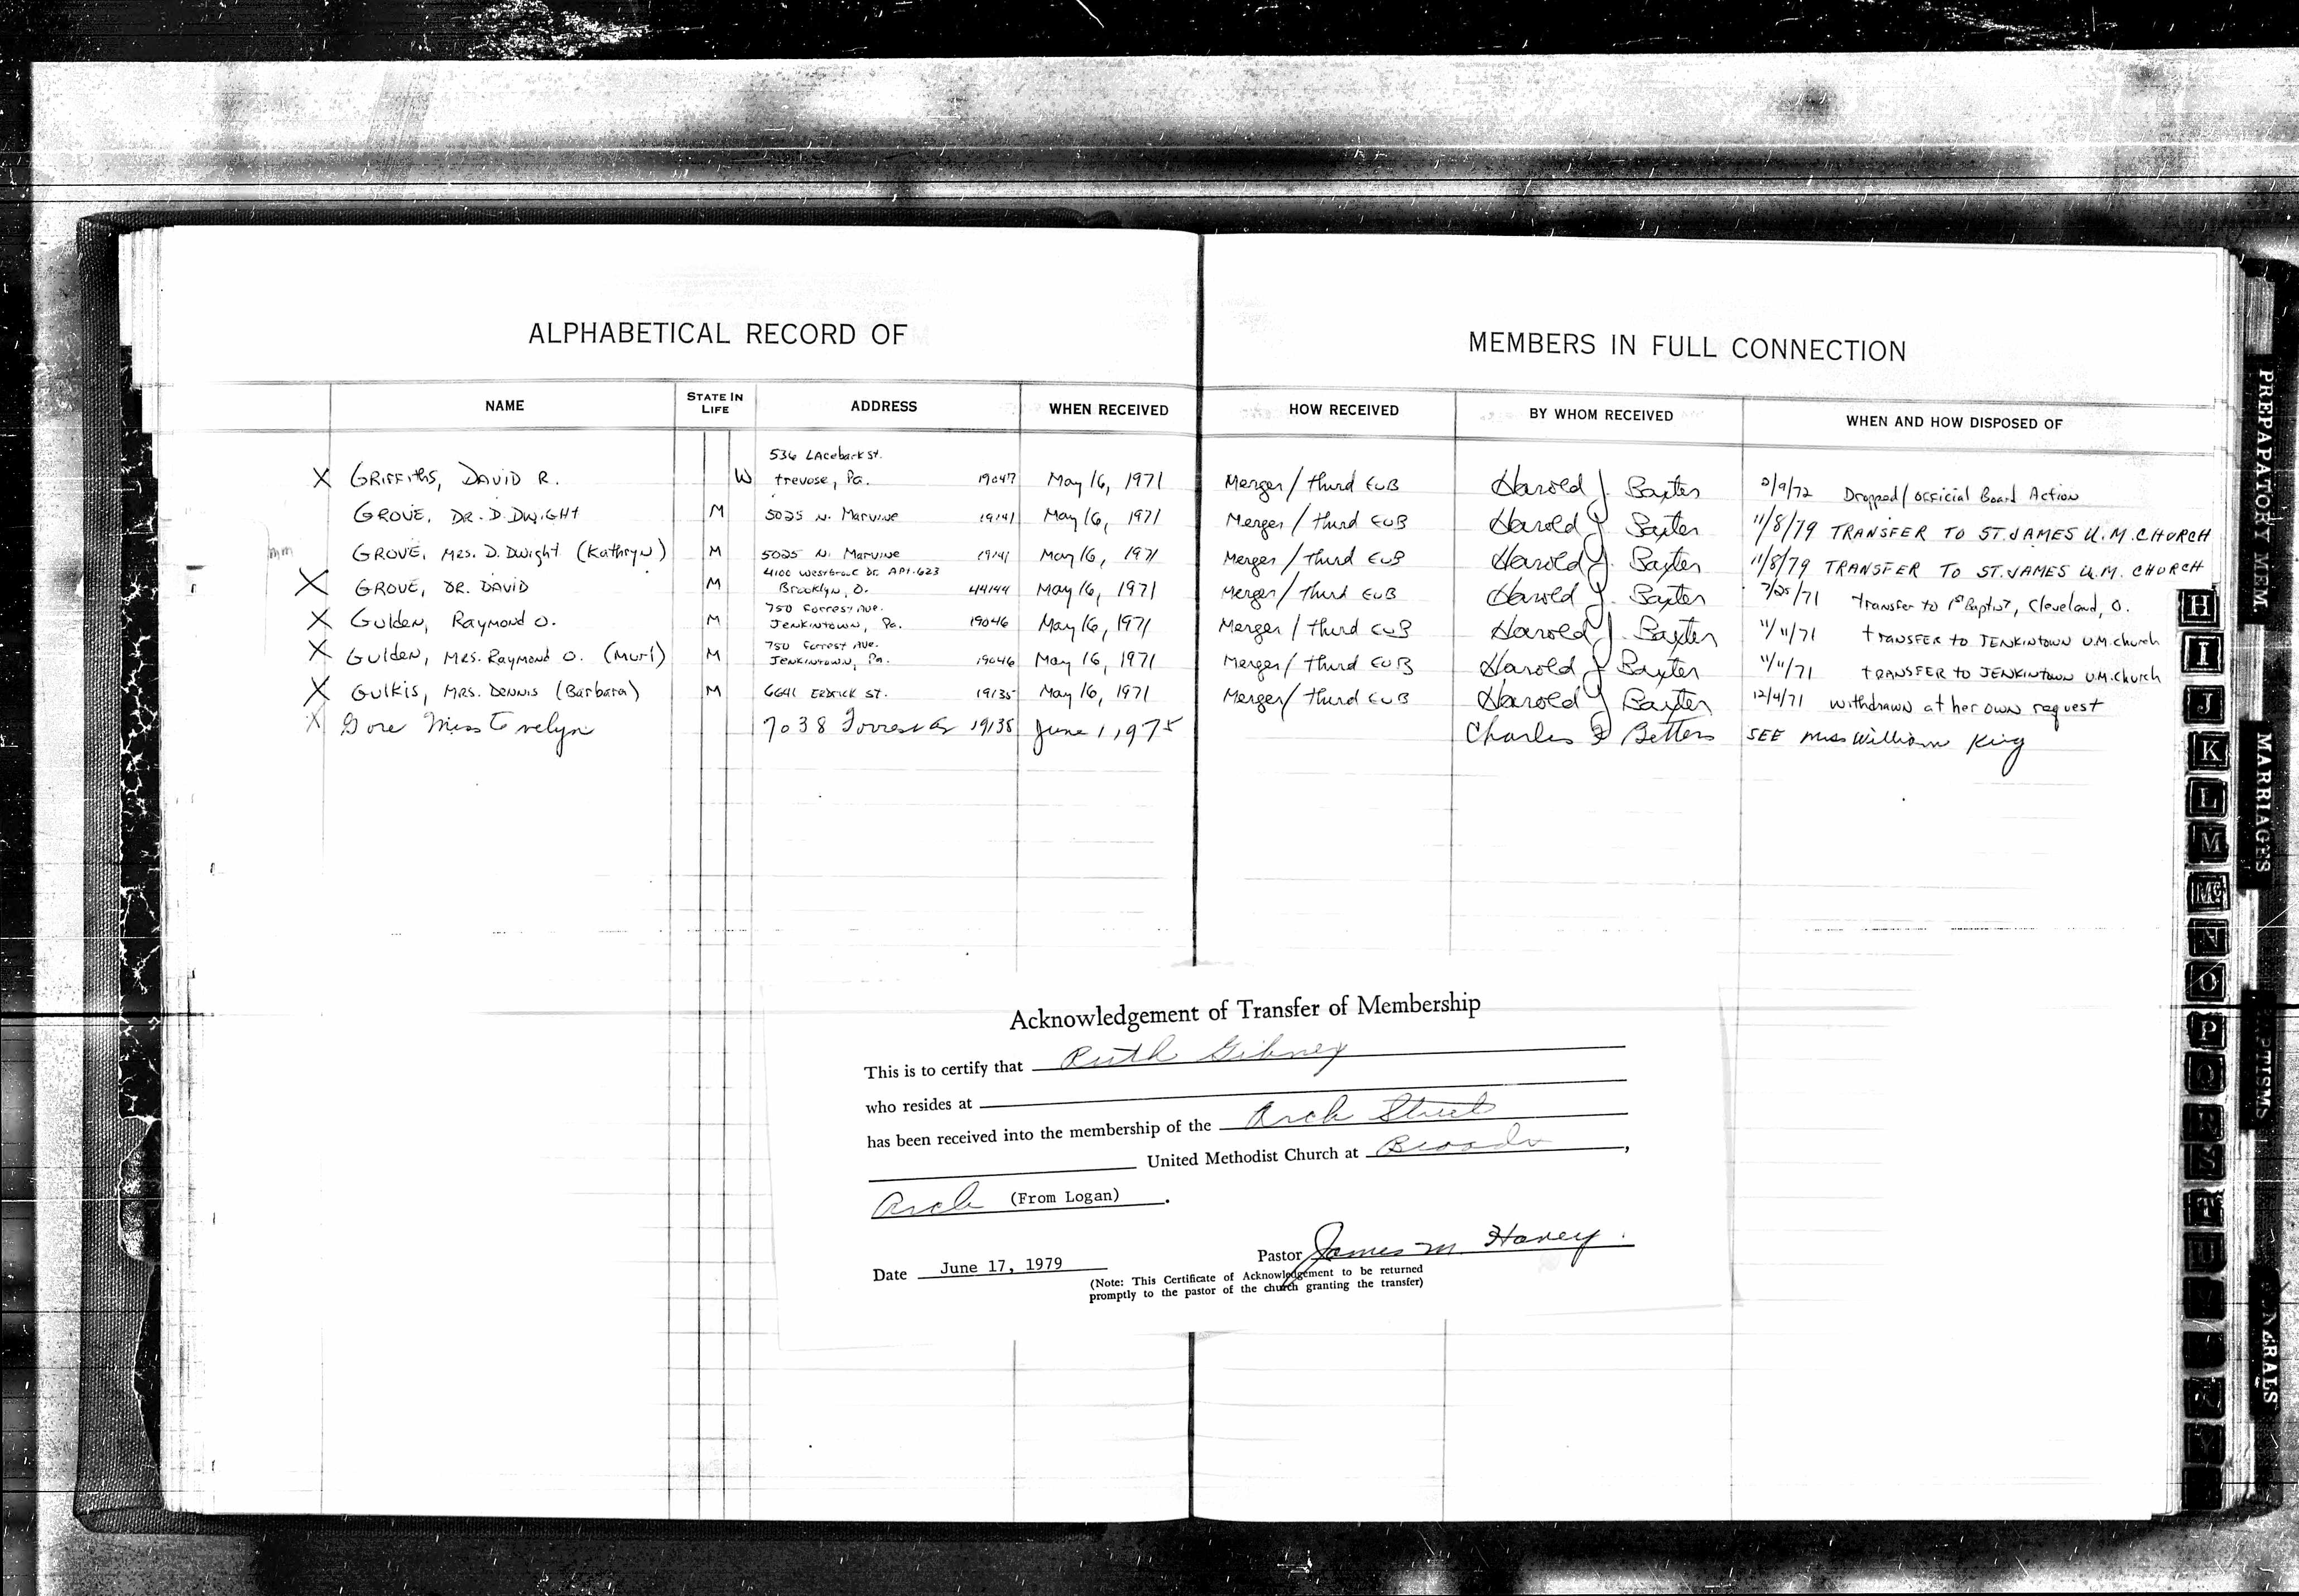 ALPHABETICAL RECORD OF
MEMBERS IN FULL CONNECTION
NAME STATE IN LIFE ADDRESS WHEN RECEIVED HOW RECEIVED BY WHOM RECEIVED WHEN AND HOW DISPOSED OF
536 Lacebark St.
X GRIFFITHS, DAVID R. W Trevose, Pa. 19047 May 16, 1971 Merger/Third EUB Harold J. Baxter 2/9/72 Dropped/Official Board Action
GROVE, DR. D. DWIGHT M 5025 N. Marvine 19141 May 16, 1971 Merger/Third EUB Harold J. Baxter 11/8/79 TRANSFER TO ST. JAMES U.M. CHURCH
mm GROVE, MRS. D. Dwight (Kathryn) M 5025 N. Marvine 19141 May 16, 1971 Merger/Third EUB Harold J. Baxter 11/8/79 TRANSFER TO ST. JAMES U.M. CHURCH
DR. APT. 623
X GROVE, DR. DAVID M Brooklyn, O. 44144 May 16, 1971 Merger/Third EUB Harold J. Baxter 7/25/71 Transfer to 1st Baptist, Cleveland, O.
750 Forrest Ave.
X Gulden, Raymond O. M JENKINTOWN, Pa. 19046 May 16, 1971 Merger/Third EUB Harold J. Baxter 11/11/71 TRANSFER TO JENKINTOWN U.M. church
750 Forrest Ave.
X Gulden, MRS. Raymond O. (Murl) M JENKINTOWN, Pa. 19046 May 16, 1971 Merger/Third EUB Harold J. Baxter 11/11/71 TRANSFER TO JENKINTOWN U.M. church
X Gulkis, MRS. Dennis (Barbara) M 6641 ERDRICK ST. 19135 May 16, 1971 Merger/Third EUB Harold J. Baxter 12/4/71 withdrawn at her own request
X Gore Miss Evelyn 7038 19135 June 1, 1975 Charles F Betters SEE William King
Acknowledgement of Transfer of Membership
This is to certify that Ruth Gibney
who resides at
has been received into the membership of the Arch Street
United Methodist Church at ,
Arch (From Logan) .
Pastor James M. Haney.
Date June 17, 1979
(Note: This Certificate of Acknowledgement to be returned
promptly to the pastor of the church granting the transfer)
PREPAPATORY MEM.
MARRIAGES
H
I
J
K
L
M
Mc
N
O
P